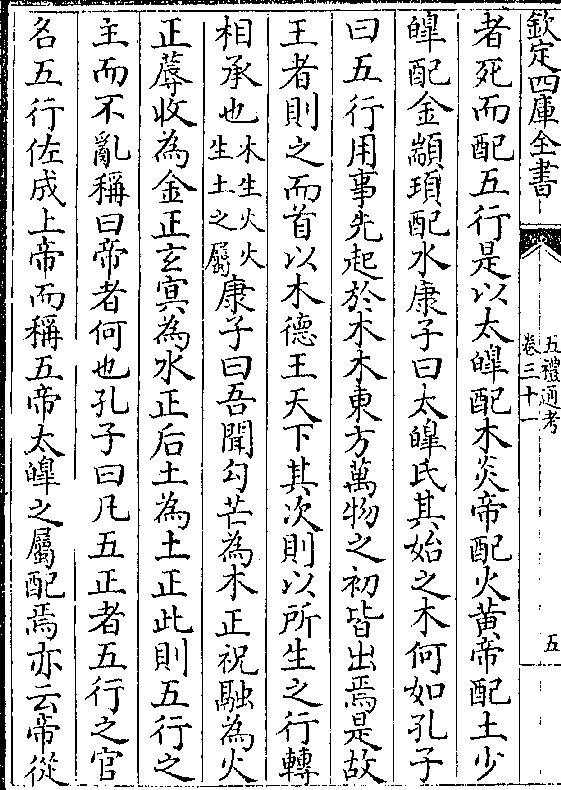 欽定四庫全書
五禮通考
卷三十一
五
者死而配五行是以太皥配木炎帝配火黄帝配土少
皥配金顓頊配水康子曰太皥氏其始之木何如孔子
曰五行用事先起於木木東方萬物之初皆出焉是故
王者則之而首以木德王天下其次則以所生之行轉
相承也木生火火生土之屬康子曰吾聞勾芒為木正祝融為火
正蓐收為金正玄冥為水正后土為土正此則五行之
主而不亂稱曰帝者何也孔子曰凡五正者五行之官
名五行佐成上帝而稱五帝太皥之屬配焉亦云帝從